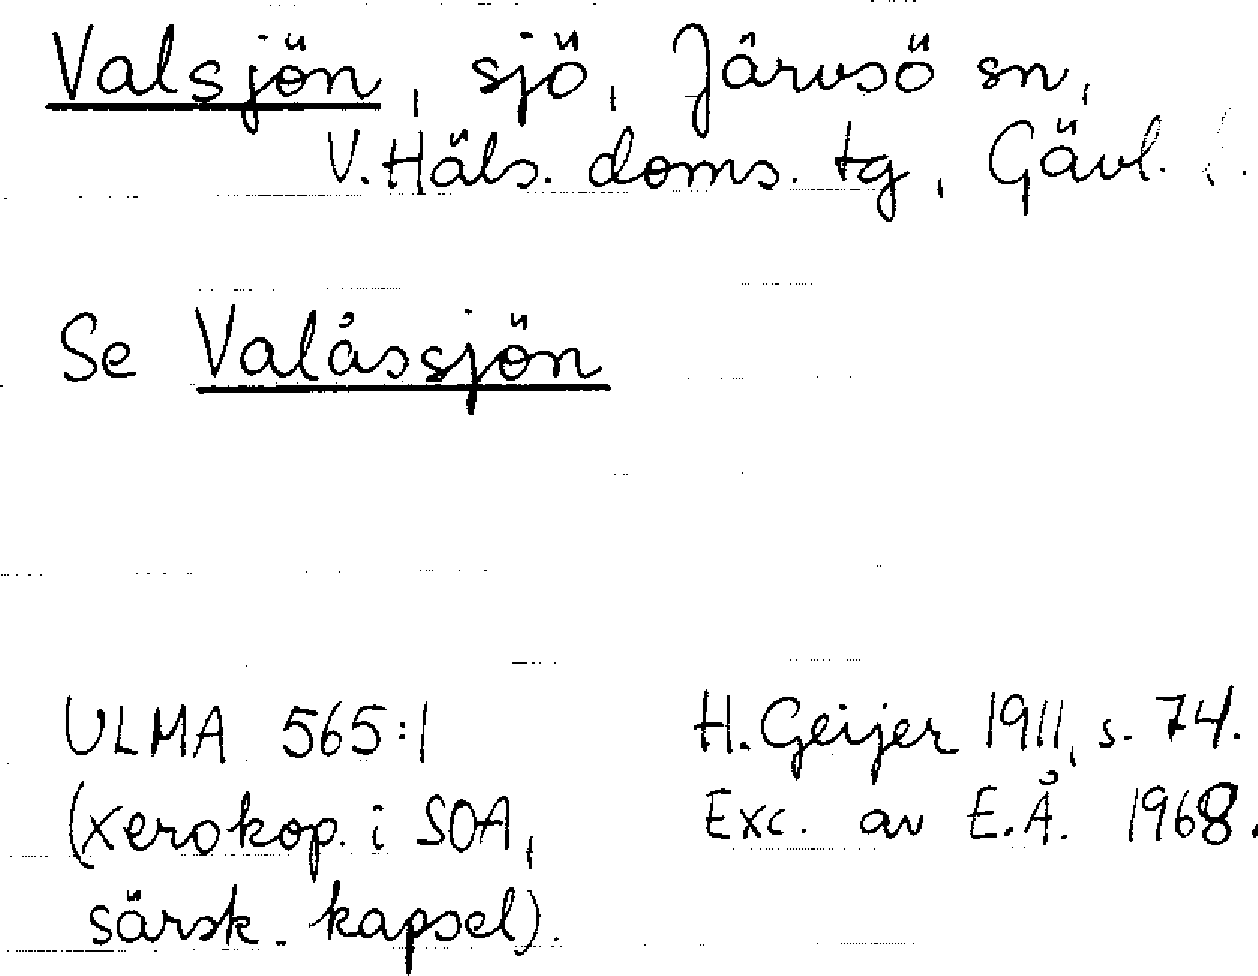 Valsjön, sjö, Järvsö sn,
V. Häls. doms. tg, Gävl. l.
Se Valåssjön
ULMA 565:1
(xerokop. i SOA,
särsk. kapsel).
H. Geijer 1911, s. 74.
Exc. av E.Å. 1968.